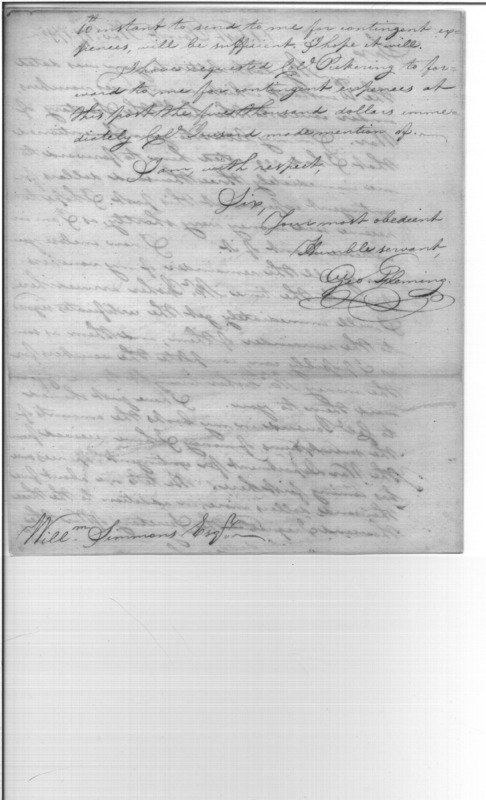 10th instant to send to me for contingent ex-
pences, will be sufficient, I hope it will.
I have requested Colo. Pickering to for-
ward to me for contingent expences at
this post the five thousand dollars imme-
diately Colo. made mention of.
I am, with respect,
Sir,
Your most obedient
Humble servant,
Geo. Fleming.
Willm. Simmons Esqr.